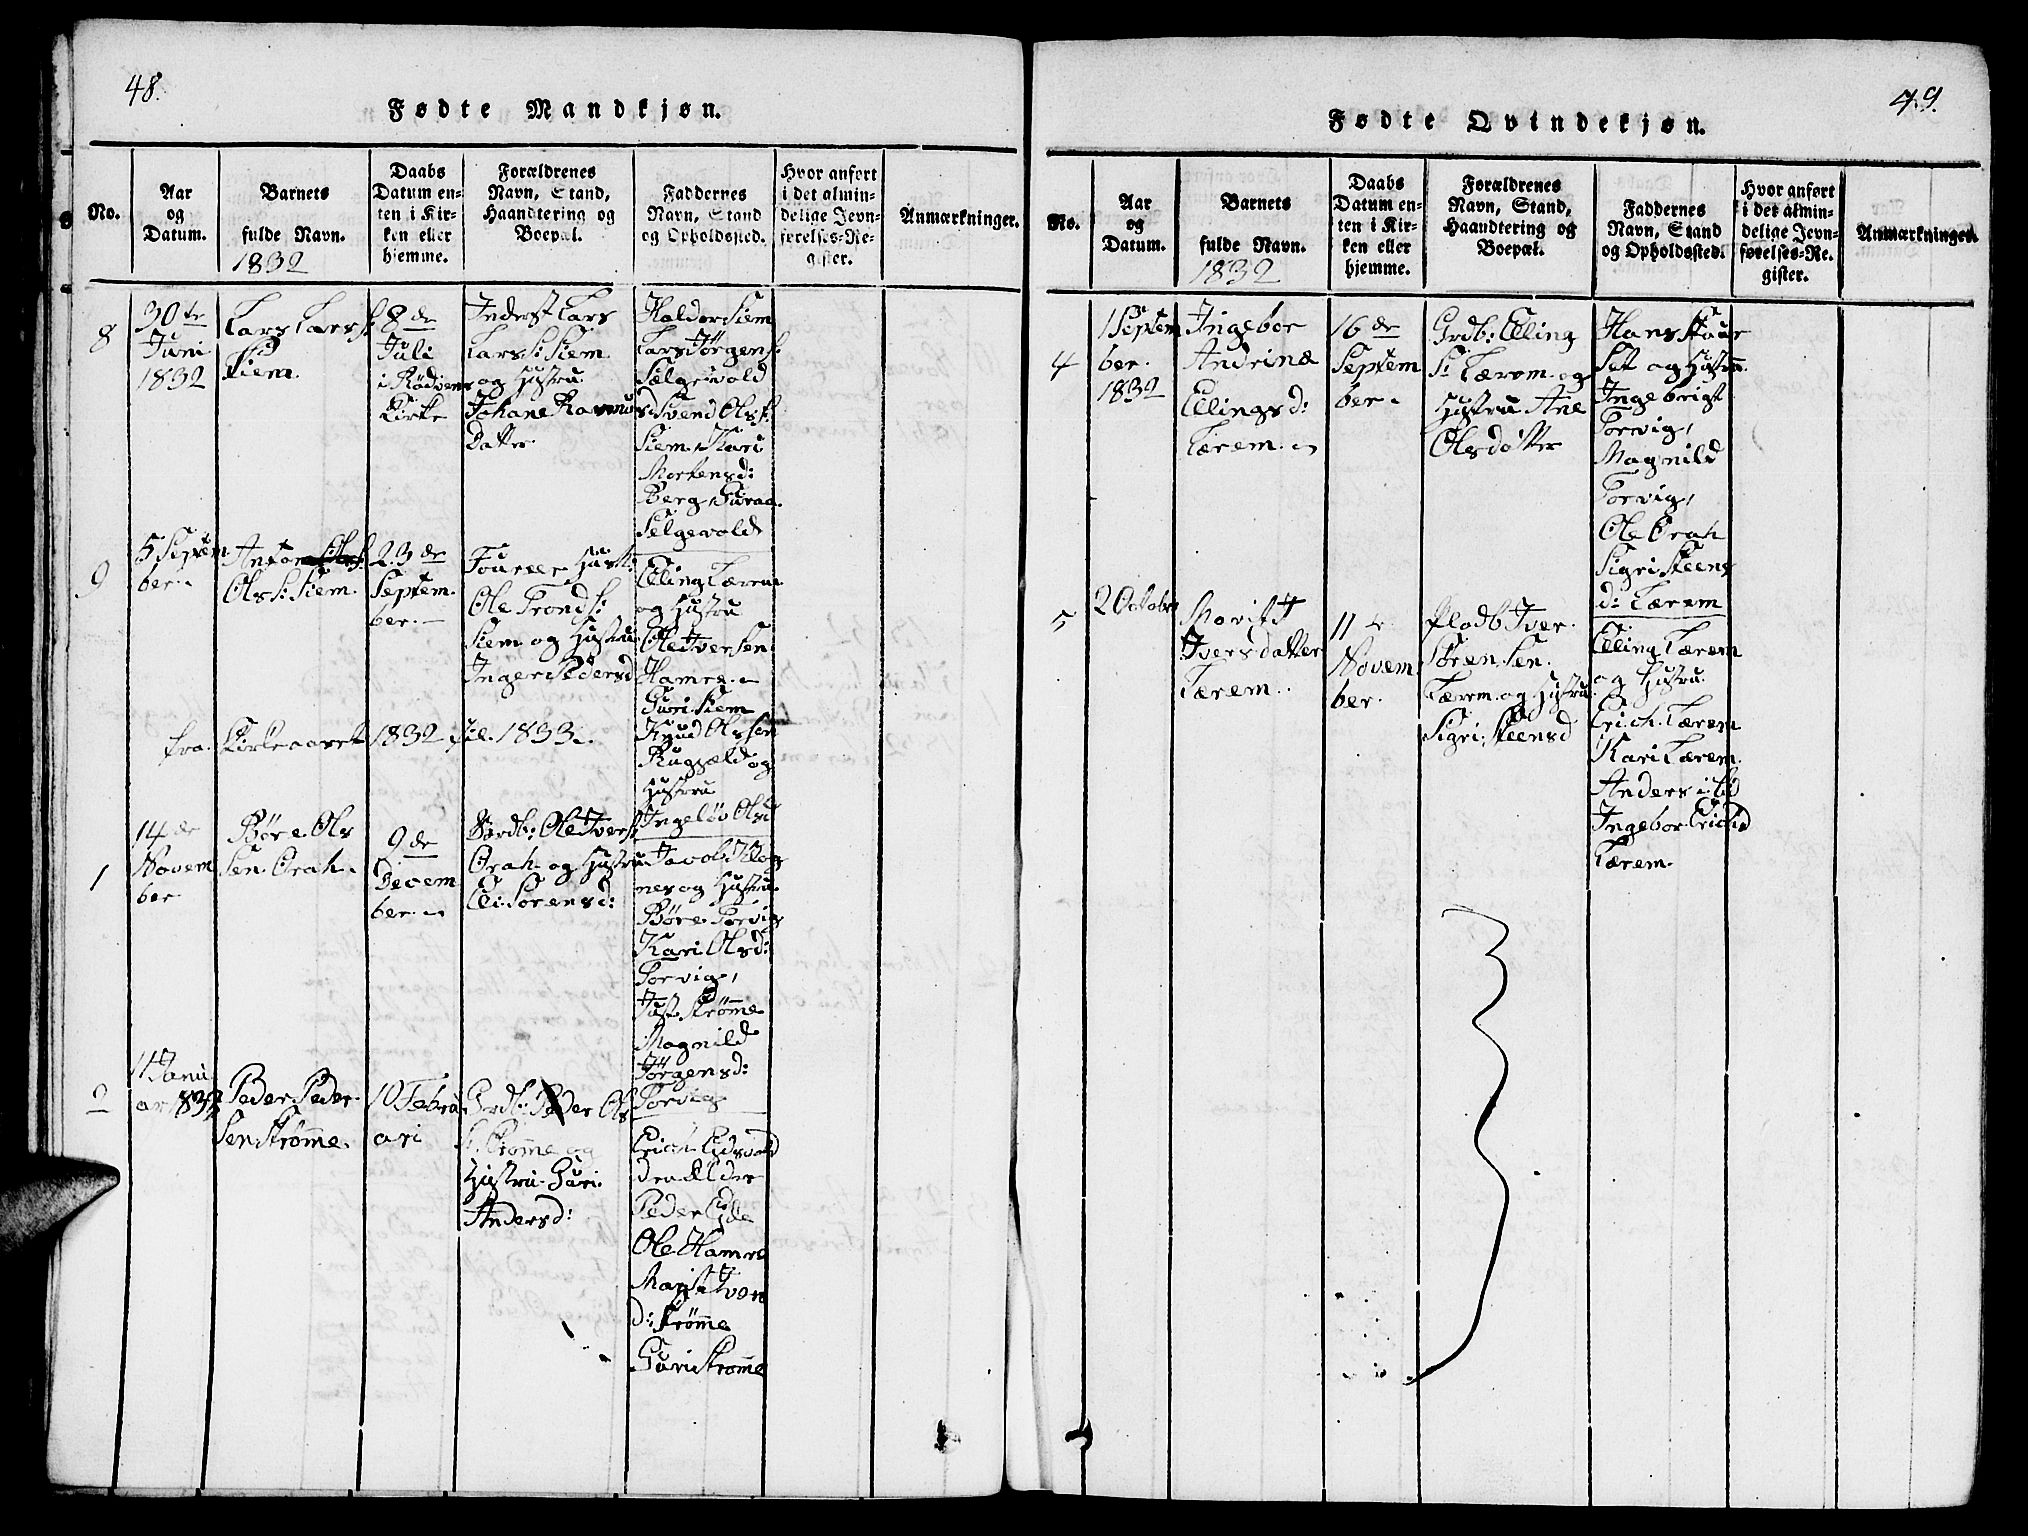 48.
Fødte Mandkjøn.
No.
Aar
og
Datum.
Barnets
fulde Navn.
1832
Daabs
Datum en-
ten i Kir-
ken eller
hjemme.
Forældrenes
Navn, Stand,
Haandtering og
Boepæl.
Faddernes
Navn, Stand
og Opholdssted.
Hvor anført
i det almin-
delige Jevn-
førelses-Re-
gister.
Anmærkninger.
8
30te
Juni
1832
Lars Larss:
Siem
8de
Juli
i Rødvens
Kirke
Inderst Lars
Larss: Siem
og Hustru
Johane Rasmus
Datter
Haldor Siem
Lars Jørgens:
Sælgevold
Svend Olss:
Siem, Kari
Mortensd:
Berg,
Selgevold
9
5 Septem
ber.
Anton
Olss: Siem.
23de
Septem.
ber.
Ole Tronds:
Siem og Hustru
Inger Pedersd
Elling Tærem
og Hustru
Ole Iversen
Hamre.
Guri Siem
Knud Olssen
og
Hustru
Ingeløv Olsd
fra. Kirkeaaret 1832 til 1833.
1
14de
Novem
ber
Børe Ols
Sen Orah.
9de
Decem
ber.
Gordb: Ole Ivers:
Orah og Hustru
Eli Sørensd:
Jacob Klog
nes og Hustru
Børe Torvig
Kari Olsd:
Torvig,
Strømme
Magnild
Jørgensd:
Torvig
2
11 Janu
ar
Peder Peder
Sen Strømme.
10 Febru
ari
Grdb: Peder Ols
S: Strømme og
Hustru Guri
Andersd:
Erich Eidsvold
den Ældre
Peder Eide
Ole Hamre
Marit
d: Strømme
Guri Strømme
49.
Fødte Qvindekjøn.
No.
Aar
og
Datum.
Barnets
fulde Navn.
1832
Daabs
Datum en-
ten i Kir-
ken eller
hjemme.
Forældrenes
Navn, Stand,
Haandtering og
Boepæl.
Faddernes
Navn, Stand
og Opholdssted.
Hvor anført
i det almin-
delige Jevn-
førelses-Re-
gister.
Anmærkninger.
4
1 Septem
ber.
1832
Ingebor
Andrinæ
Ellingsd:
Tærem.
16de
Septem
ber.
Grdb: Elling
S: Tærem og
Hustru Ane
Olsdatter
Hans Staur
Set og Hustru.
Ingebrigt
Torvig,
Magnild
Torvig,
Ole Orah
Sigri Steens
d: Tærem
5
2 October
Marit
Iversdatter
Tærem.
11
Novem
ber.
Pladb Iver
Søren Sen.
Tærem og Hustru
Sigri Steensd
Elling Tærem
og Hustru
Erich Tærem
Kari Tærem.
Anders
Ingebor Erichsd
Tærem.